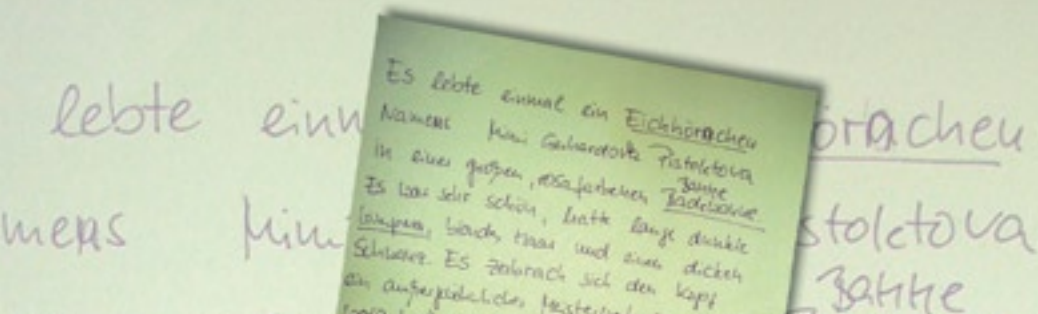 lebte einm
örnchen
mens Mimi
stoletova
Banne
Es lebte einmal ein Eichhörnchen
Namens Mimi Gerhardovna Pistoletova
in einer großen, rosafarbenen Badebanne
Es war sehr schön, hatte lange dunkle
Wimpern, blondes Haar und einen dicken
Schwanz. Es zerbrach sich den Kopf
ein außergewöhnliches